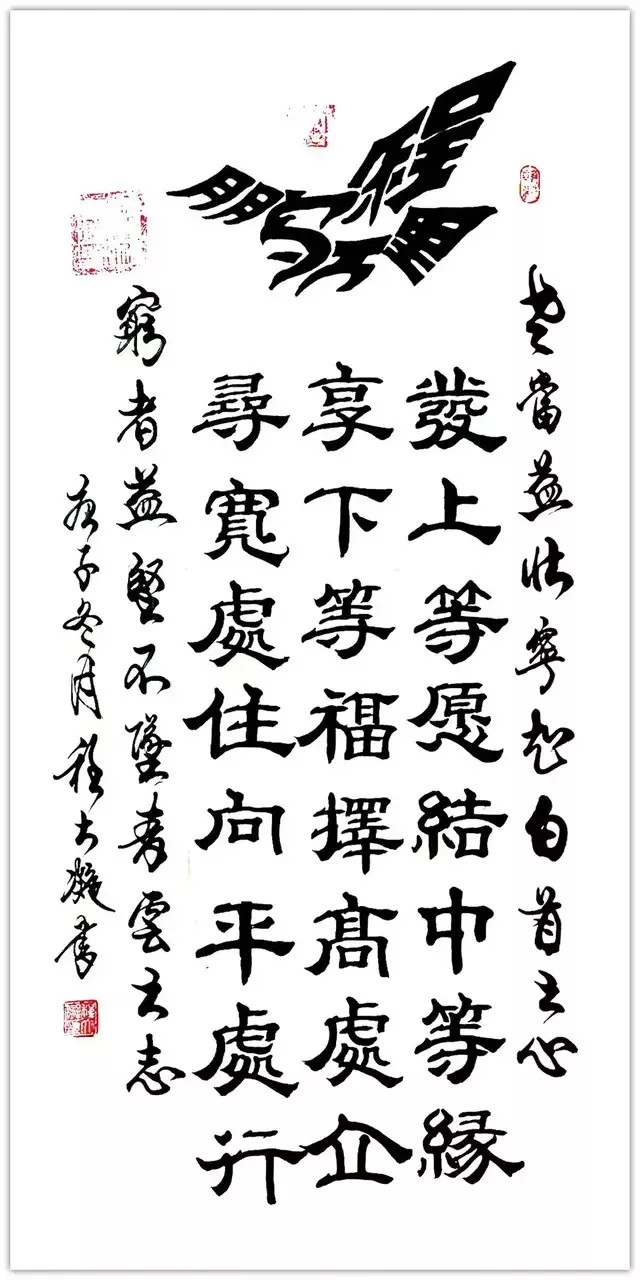 鹏程万里
老當益壮寧知白首之心
發上等愿結中等緣
享下等福擇髙處立
尋寬處住向平處行
窮者益堅不墜青雲之志
庚子冬月程书